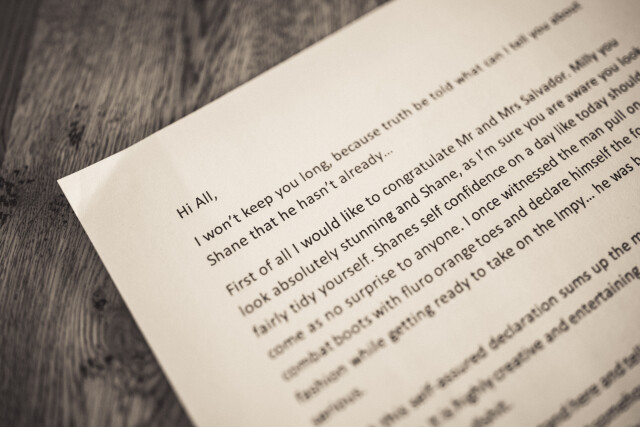 Hi All,
I won't keep you long, because truth be told what can I tell you about
Shane that he hasn't already...
First of all I would like to congratulate Mr and Mrs Salvador. Milly you
look absolutely stunning and Shane, as I'm sure you are aware you look
fairly tidy yourself. Shanes self confidence on a day like today should
come as no surprise to anyone. I once witnessed the man pull
combat boots with fluro orange toes and declare himself the
fashion while getting ready to take on the Impy... he was
serious.
this self-assured declaration sums up the
it is highly creative and entertaining
and here and